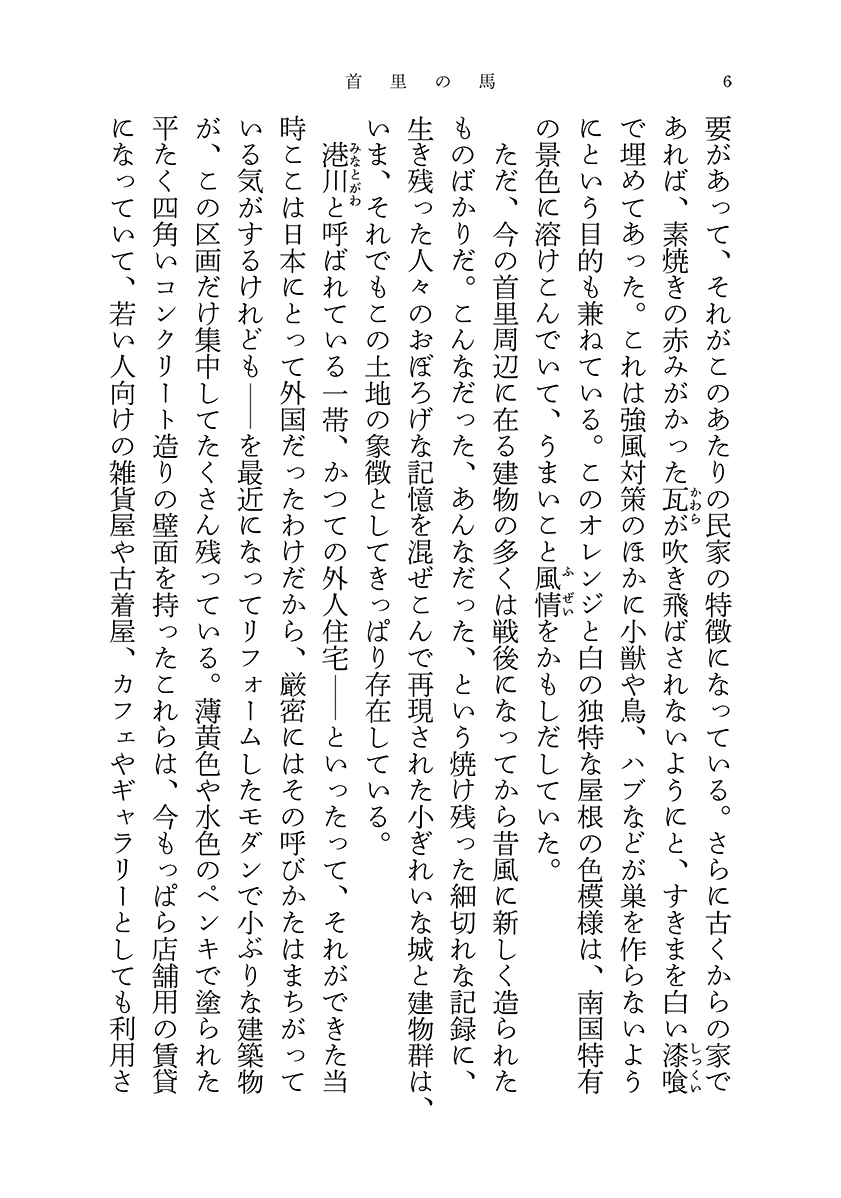 首里の馬
6
要があって、それがこのあたりの民家の特徴になっている。さらに古くからの家で
あれば、素焼きの赤みがかった瓦が吹き飛ばされないようにと、すきまを白い漆喰
かわら
しっくい
で埋めてあった。これは強風対策のほかに小獣や鳥、ハブなどが巣を作らないよう
にという目的も兼ねている。このオレンジと白の独特な屋根の色模様は、南国特有
の景色に溶けこんでいて、うまいこと風情をかもしだしていた。
ふぜい
ただ、今の首里周辺に在る建物の多くは戦後になってから昔風に新しく造られた
ものばかりだ。こんなだった、あんなだった、という焼け残った細切れな記録に、
生き残った人々のおぼろげな記憶を混ぜこんで再現された小ぎれいな城と建物群は、
いま、それでもこの土地の象徴としてきっぱり存在している。
港川と呼ばれている一帯、かつての外人住宅――といったって、それができた当
みなとがわ
時ここは日本にとって外国だったわけだから、厳密にはその呼びかたはまちがって
いる気がするけれども――を最近になってリフォームしたモダンで小ぶりな建築物
が、この区画だけ集中してたくさん残っている。薄黄色や水色のペンキで塗られた
平たく四角いコンクリート造りの壁面を持ったこれらは、今もっぱら店舗用の賃貸
になっていて、若い人向けの雑貨屋や古着屋、カフェやギャラリーとしても利用さ